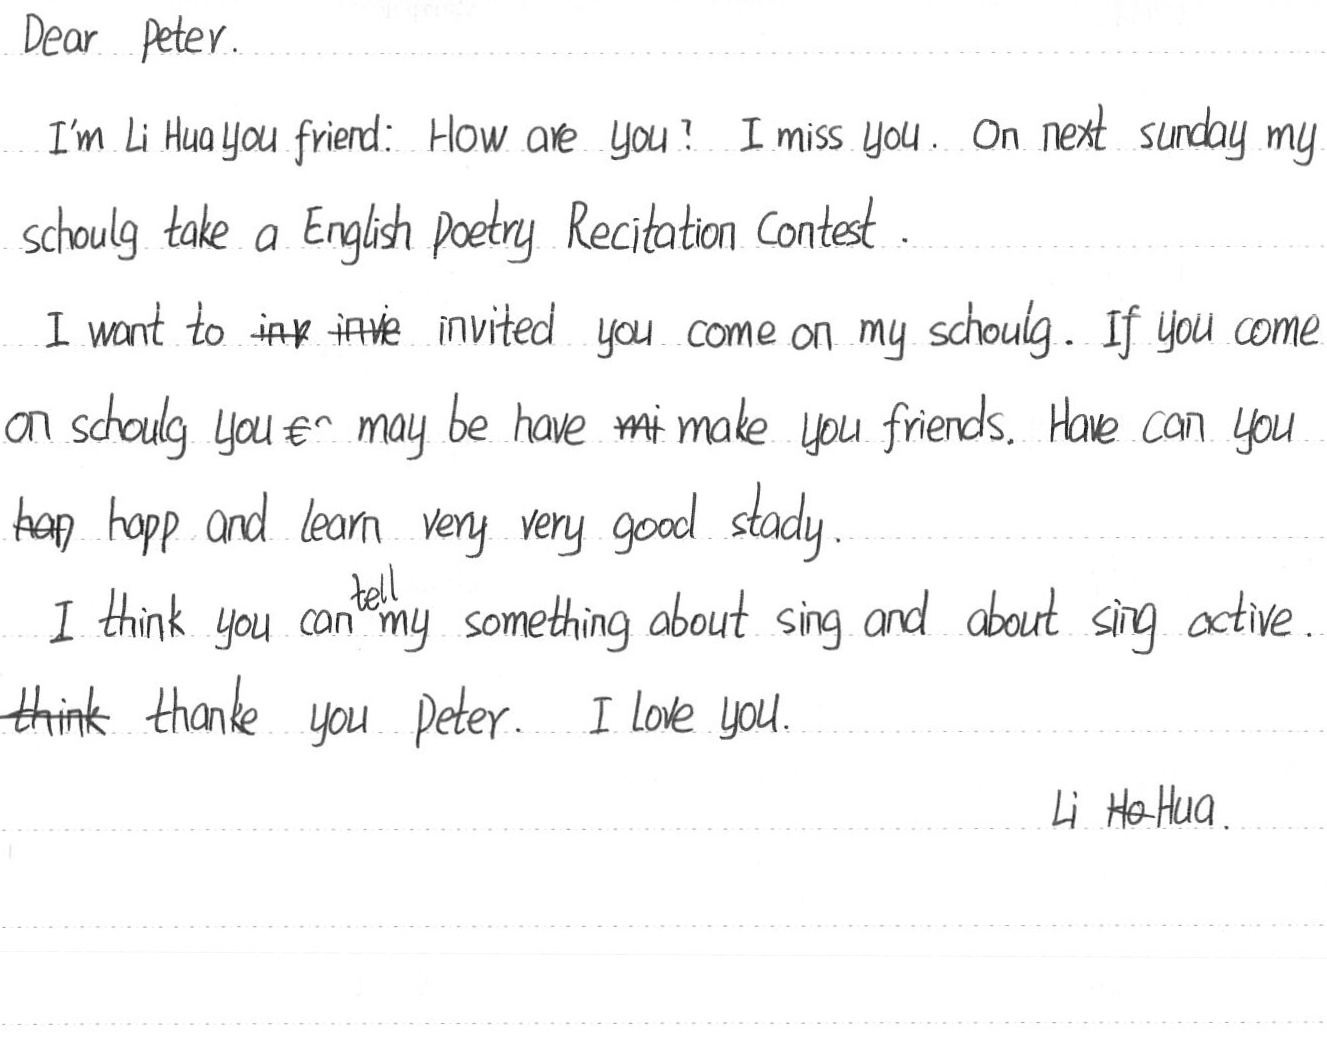 Dear Peter.
I'm Li Hua you friend: How are you? I miss you. On next sunday my
schoulg take a English Poetry Recitation Contest.
I want to invited you come on my schoulg. If you come
on schoulg you may be have make you friends. Have can you
happ and learn very very good stady.
I think you can tell my something about sing and about sing active.
thanke you Peter. I love you.
Li Hua.